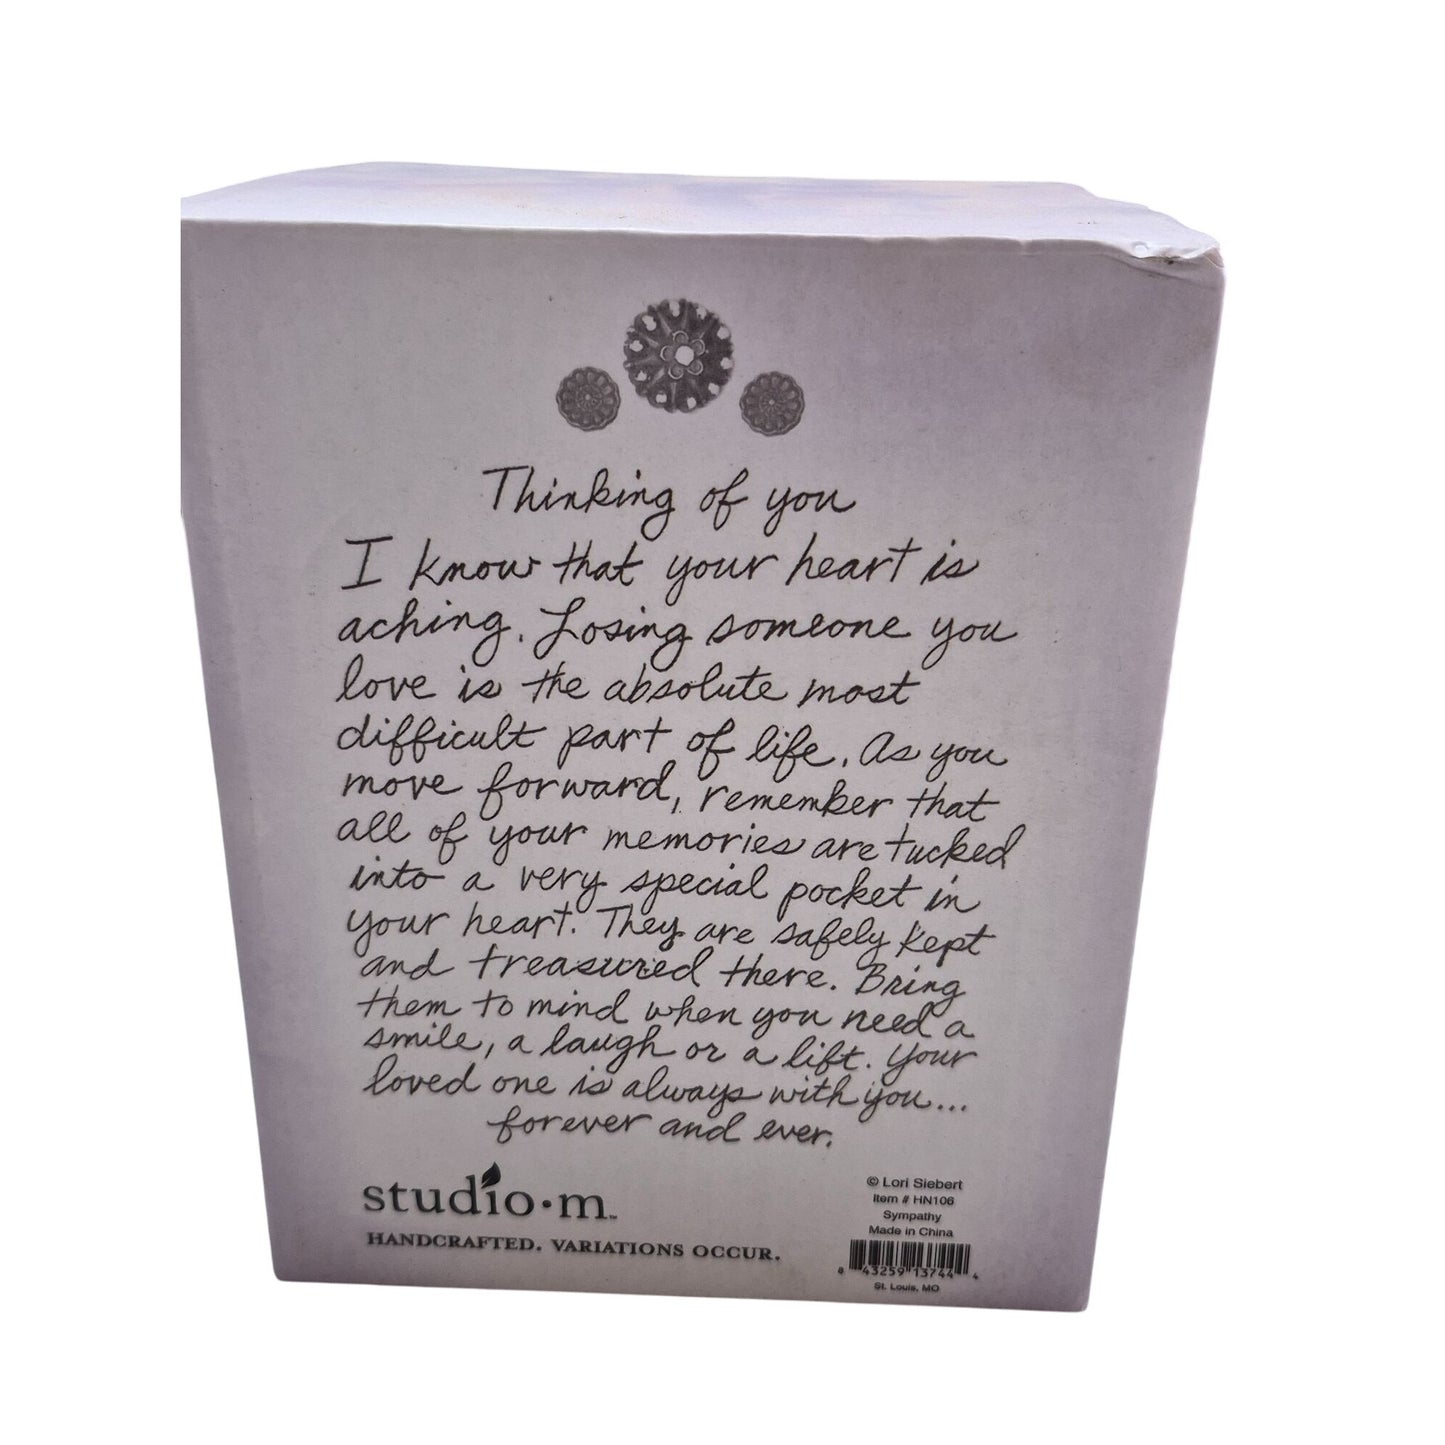 Thinking of you
I know that your heart is
aching. Losing someone you
love is the absolute most
difficult part of life. As you
move forward, remember that
all of your memories are tucked
into a very special pocket in
your heart. They are safely kept
and treasured there. Bring
them to mind when you need a
smile, a laugh or a lift. Your
loved one is always with you...
forever and ever.
studio·m™
HANDCRAFTED. VARIATIONS OCCUR.
© Lori Siebert
Item # HN106
Sympathy
Made in China
8 43259 13744 4
St. Louis, MO